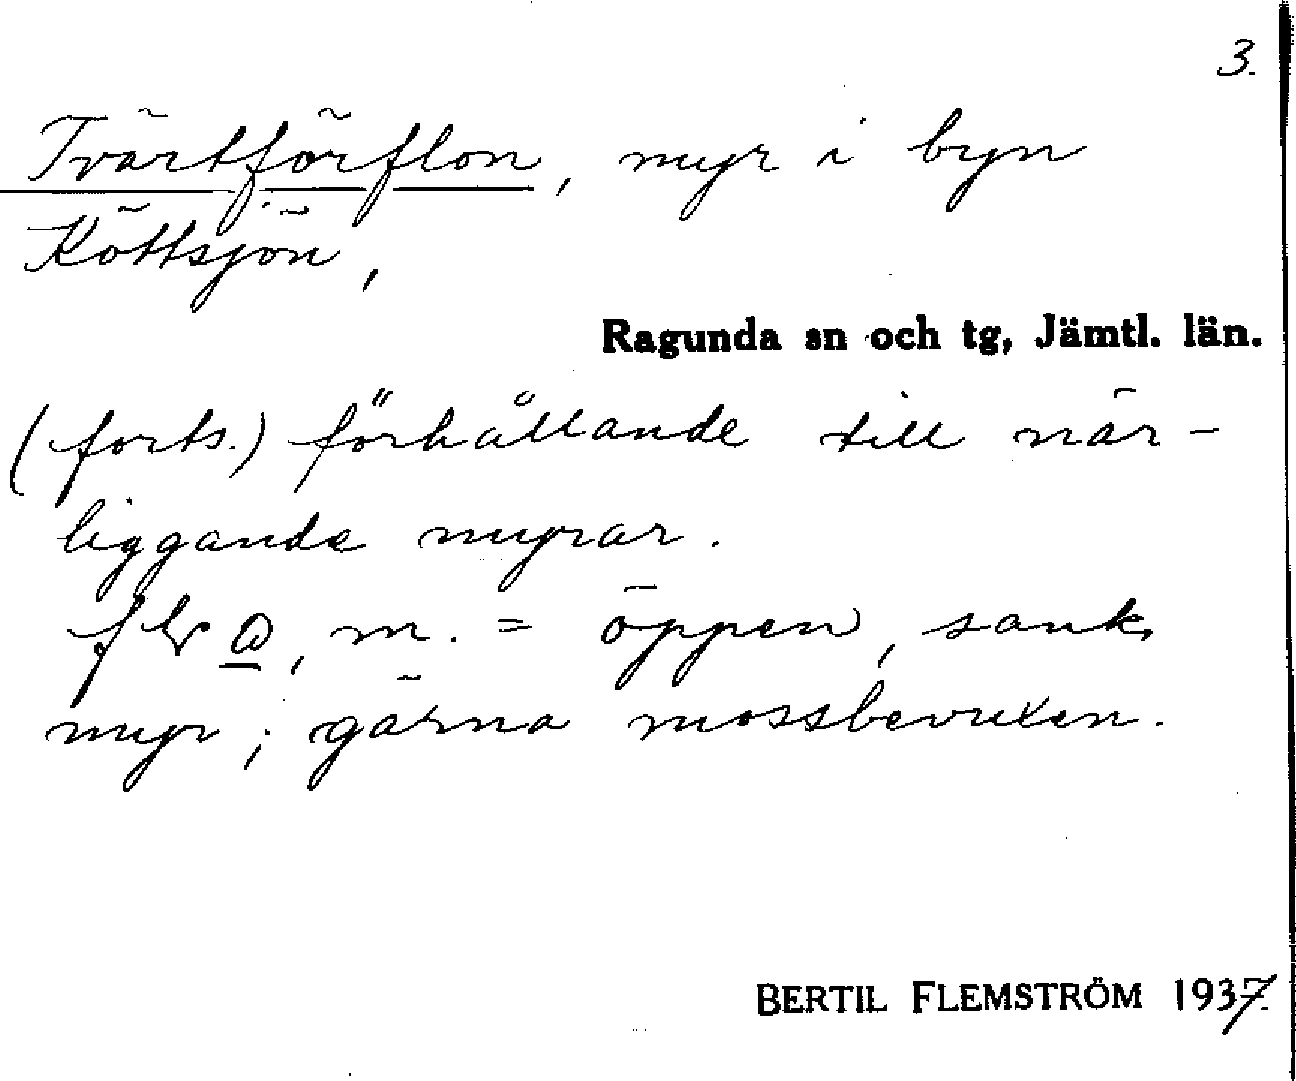 3.
Tvärtförflon, myr i byn
Köttsjön,
Ragunda sn och tg, Jämtl. län.
(forts.) förhållande till när-
liggande myrar.
m. = öppen, sank
myr; gärna mossbevuxen.
BERTIL FLEMSTRÖM 1937.